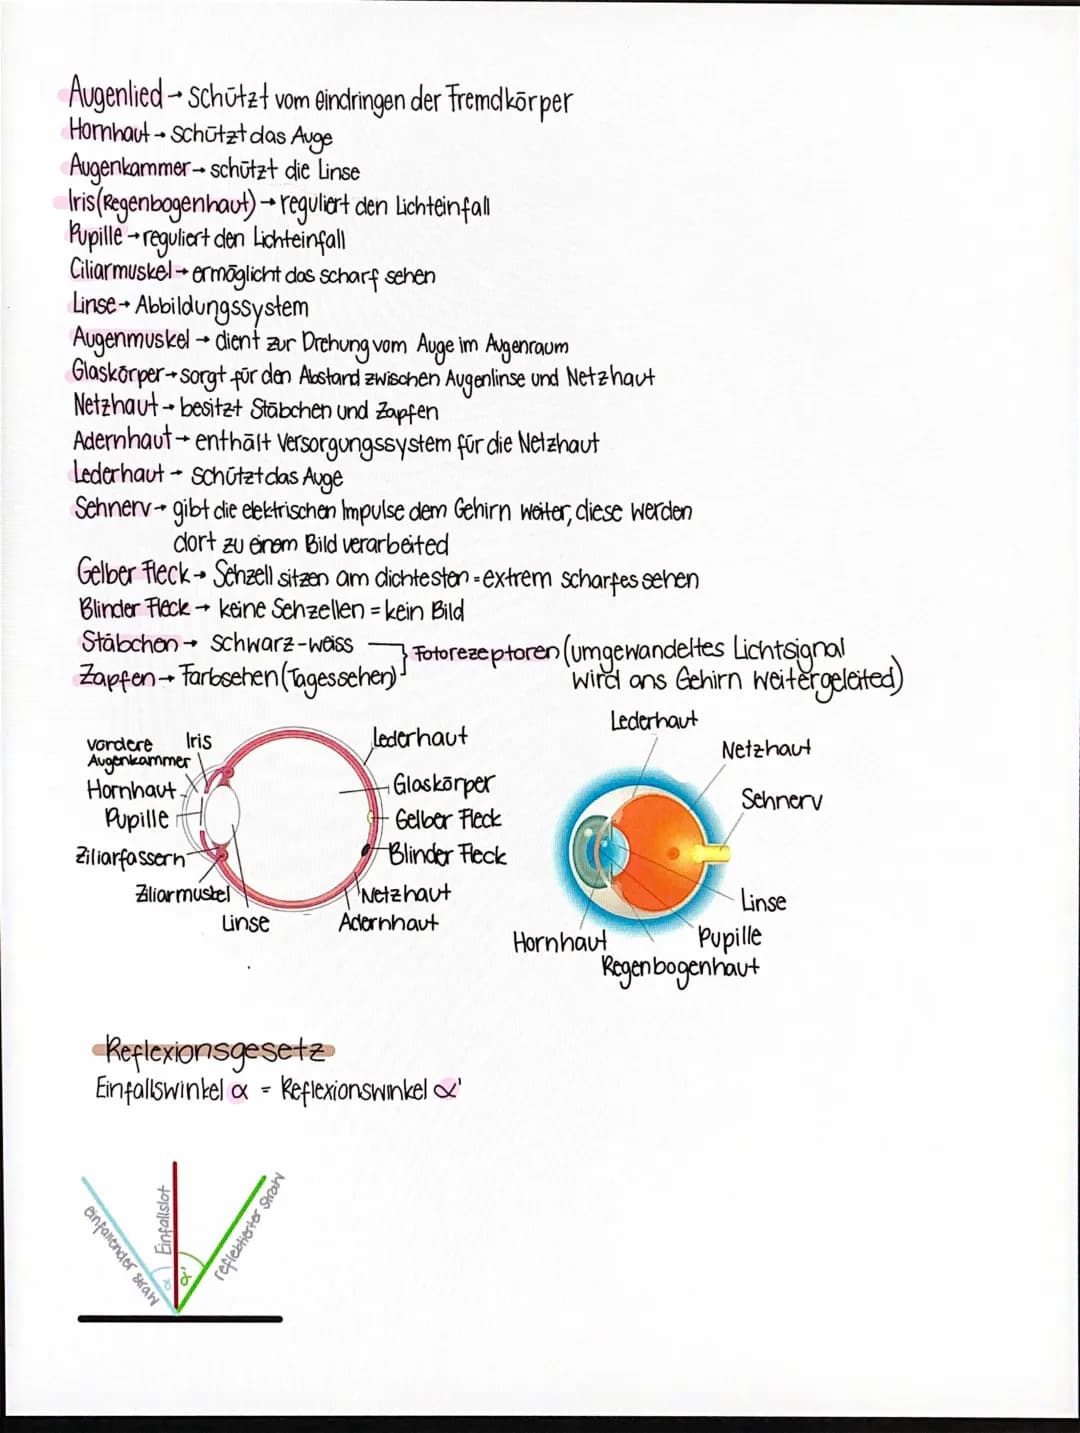 Augenlied → schützt vom eindringen der Fremdkörper
Hornhaut → schützt das Auge
Augenkammer → schützt die Linse
Iris (Regenbogenhaut) → reguliert den Lichteinfall
Pupille → reguliert den Lichteinfall
Ciliarmuskel → ermöglicht das scharf sehen
Linse → Abbildungssystem
Augenmuskel → dient zur Drehung vom Auge im Augenraum
Glaskörper → sorgt für den Abstand zwischen Augenlinse und Netzhaut
Netzhaut → besitzt Stäbchen und Zapfen
Adernhaut → enthält Versorgungssystem für die Netzhaut
Lederhaut → schützt das Auge
Sehnerv → gibt die elektrischen Impulse dem Gehirn weiter, diese werden
dort zu einem Bild verarbeited
Gelber Fleck → Sehzell sitzen am dichtesten = extrem scharfes sehen
Blinder Fleck → keine Sehzellen = kein Bild
Stäbchen → Schwarz-weiss
Zapfen → Farbsehen (Tagessehen)
Fotorezeptoren (umgewandeltes Lichtsignal
wird ans Gehirn weitergeleited)
vordere
Augenkammer
Iris
Hornhaut
Pupille
Ziliarfassern
Ziliarmuskel
Linse
Lederhaut
Glaskörper
Gelber Fleck
Blinder Fleck
Netzhaut
Adernhaut
Lederhaut
Netzhaut
Sehnerv
Linse
Pupille
Hornhaut
Regenbogenhaut
Reflexionsgesetz
Einfallswinkel α = Reflexionswinkel α'
einfallender Strahl
Einfallslot
reflektierter Strahl
α
α'